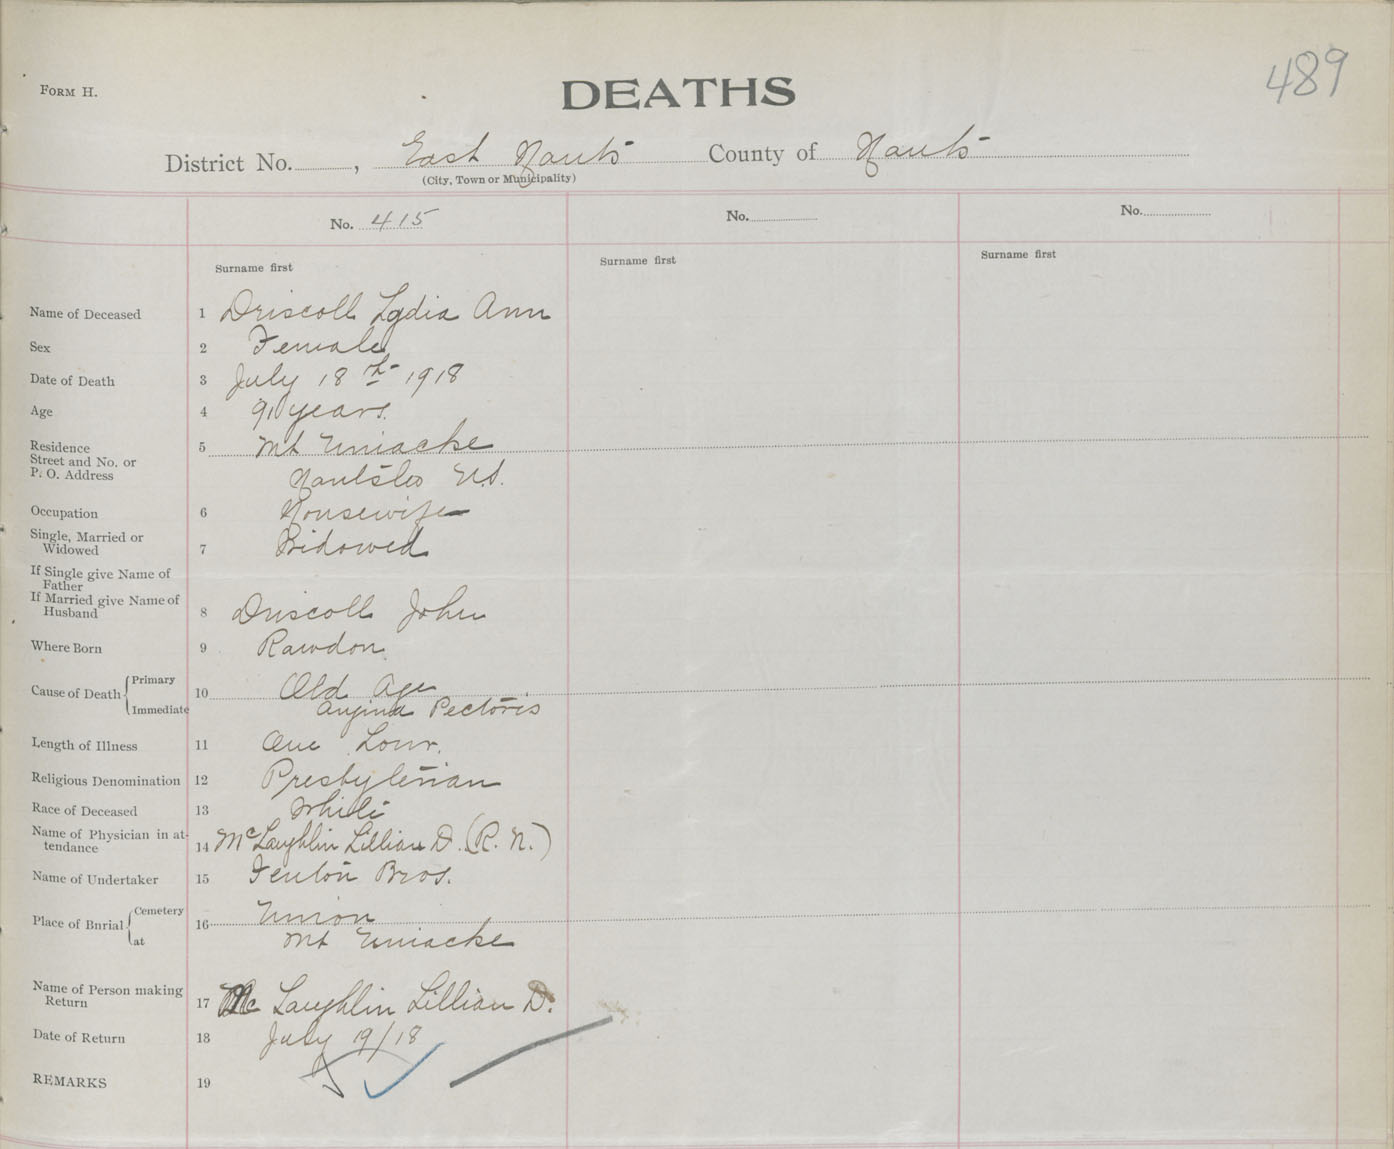 FORM H.
DEATHS
489
District No. , East Hants County of Hants
(City, Town or Municipality)
No. 415 No. No.
Surname first Surname first Surname first
Name of Deceased 1 Driscoll Lydia Ann
Sex 2 Female
Date of Death 3 July 18th 1918
Age 4 91 years.
Residence 5 Mt Uniacke
Street and No. or
P. O. Address Hants Co N.S.
Occupation 6 Housewife
Single, Married or
Widowed 7 Widowed
If Single give Name of
Father
If Married give Name of
Husband 8 Driscoll John
Where Born 9 Rawdon
Cause of Death Primary 10 Old Age
Immediate Angina Pectoris
Length of Illness 11 One hour.
Religious Denomination 12 Presbyterian
Race of Deceased 13 White
Name of Physician in at-
tendance 14 McLaughlin Lillian D. (R. N.)
Name of Undertaker 15 Fenton Bros.
Place of Burial Cemetery 16 Union
at Mt Uniacke
Name of Person making
Return 17 Mc Laughlin Lillian D.
Date of Return 18 July 19/18
REMARKS 19